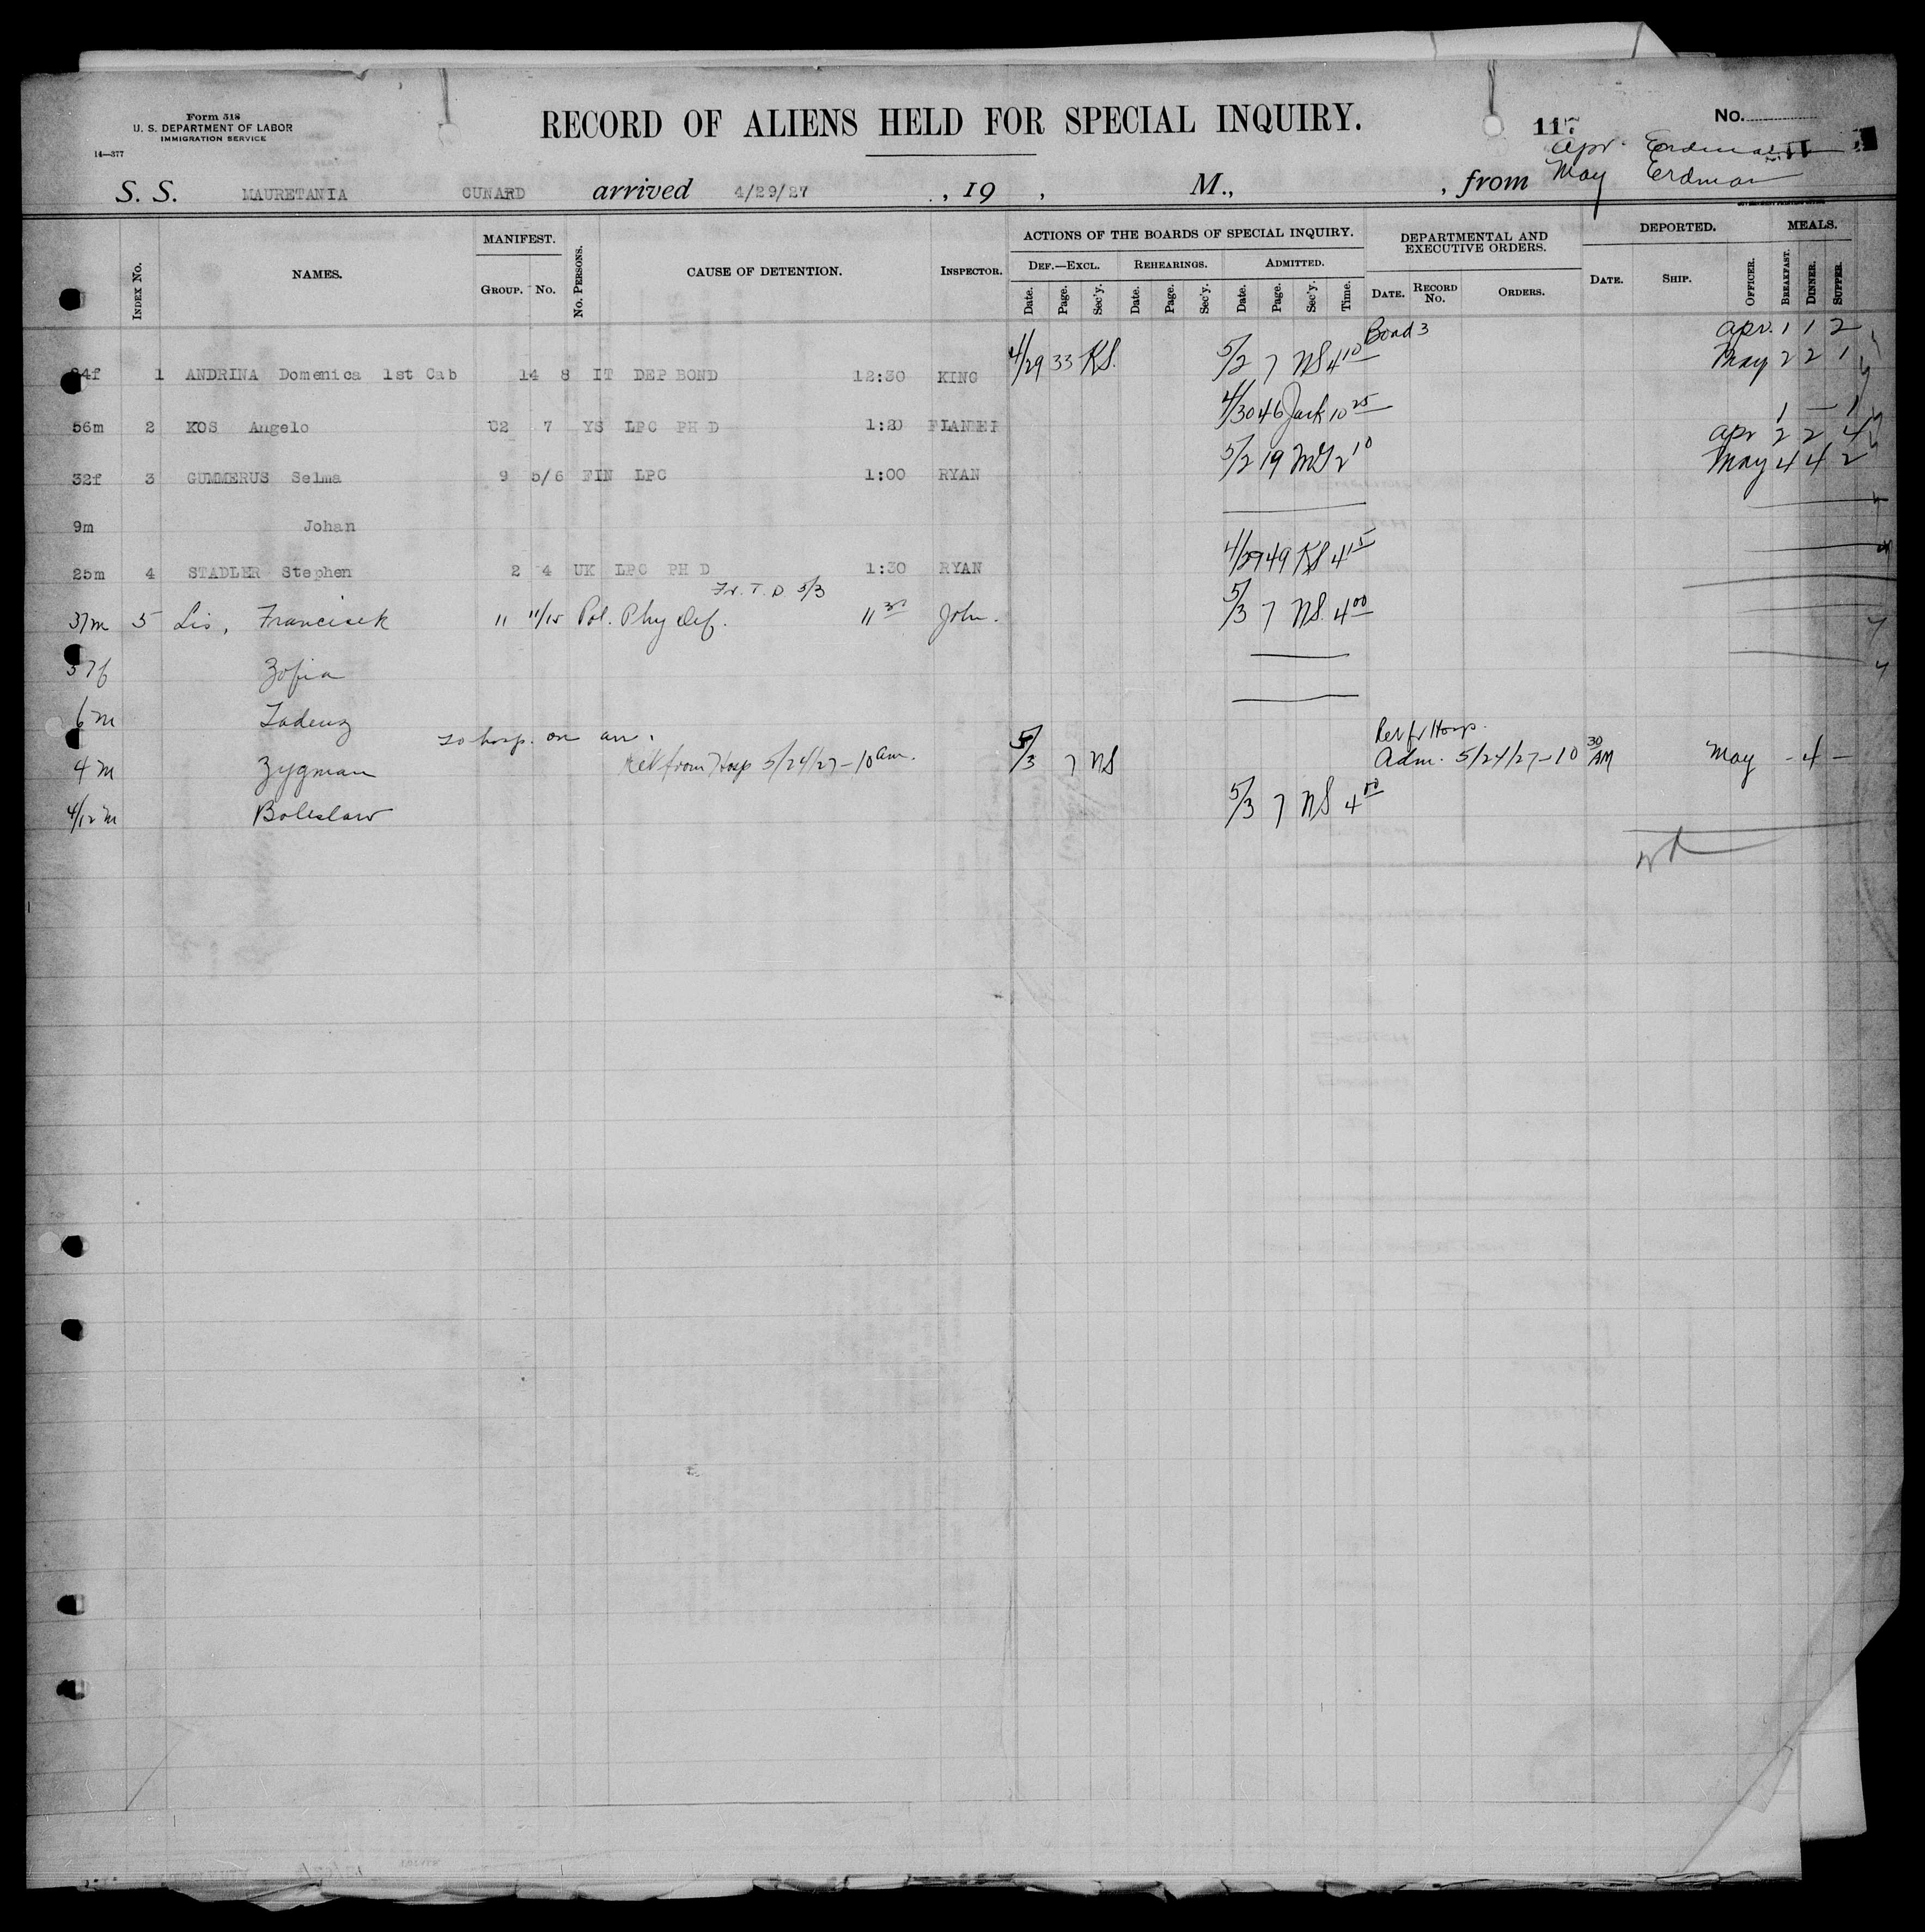 Form 518
U. S. DEPARTMENT OF LABOR
IMMIGRATION SERVICE
14—377
RECORD OF ALIENS HELD FOR SPECIAL INQUIRY.
117
No.
Apr. Erdman
May Erdman
S. S. MAURETANIA CUNARD arrived 4/29/27 , 19 , M., , from
INDEX NO. NAMES. MANIFEST. GROUP. NO. NO. PERSONS. CAUSE OF DETENTION. INSPECTOR.
ACTIONS OF THE BOARDS OF SPECIAL INQUIRY.
DEF.—EXCL. REHEARINGS. ADMITTED.
Date. Page. Sec'y. Date. Page. Sec'y. Date. Page. Sec'y. Time.
DEPARTMENTAL AND EXECUTIVE ORDERS.
DATE. RECORD NO. ORDERS.
DEPORTED.
DATE. SHIP. OFFICER.
MEALS.
BREAKFAST. DINNER. SUPPER.
Bond 3 Apr. 1 1 2
4f 1 ANDRINA Domenica 1st Cab 14 8 IT DEP BOND 12:30 KING 4/29 33 KS. 5/2 7 NS 4 10 May 2 2 1
56m 2 KOS Angelo C2 7 YS LPC PH D 1:20 4/30 46 Jack 10 25 1 — 1
Apr 2 2 4
32f 3 GUMMERUS Selma 9 5/6 FIN LPC 1:00 RYAN 5/2 19 2 10 May 4 4 2
9m Johan
25m 4 STADLER Stephen 2 4 UK LPC PH D 1:30 RYAN 4/29 49 KS 4 15
Fr. T. D. 5/3
37m 5 Lis, Francisek 11 11/15 Pol. Phy Def. 11 30 John. 5/3 7 NS. 4 00
37f Zofia
6m Tadeuz
To hosp. on arr. Ret fr Hosp.
4m Zygman Ret from Hosp 5/24/27 – 10 am. 5/3 7 NS Adm. 5/24/27 – 10 30 AM May - 4 -
4/12 m Boleslaw 5/3 7 NS 4 00